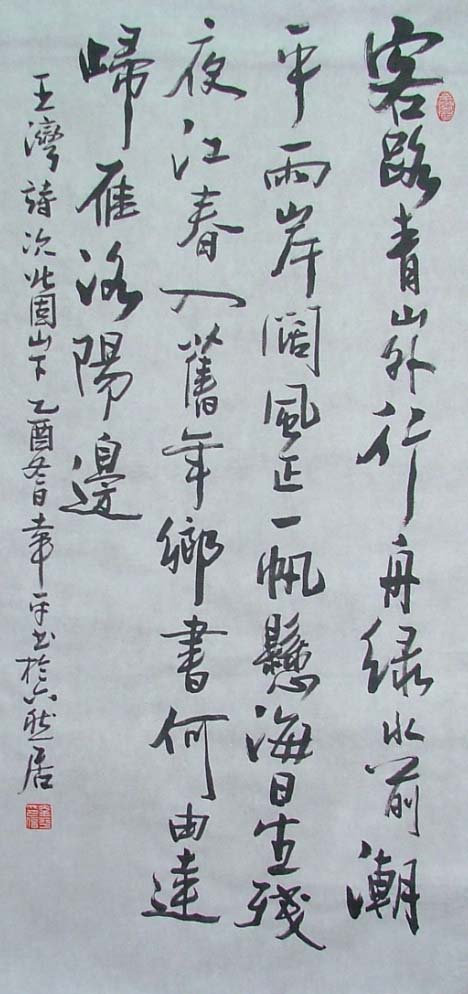 客路青山外行舟緑水前潮
平兩岸闊風正一帆懸海日生殘
夜江春入舊年鄉書何由達
歸雁洛陽邊
王灣詩次北固山下乙酉冬日平书於居